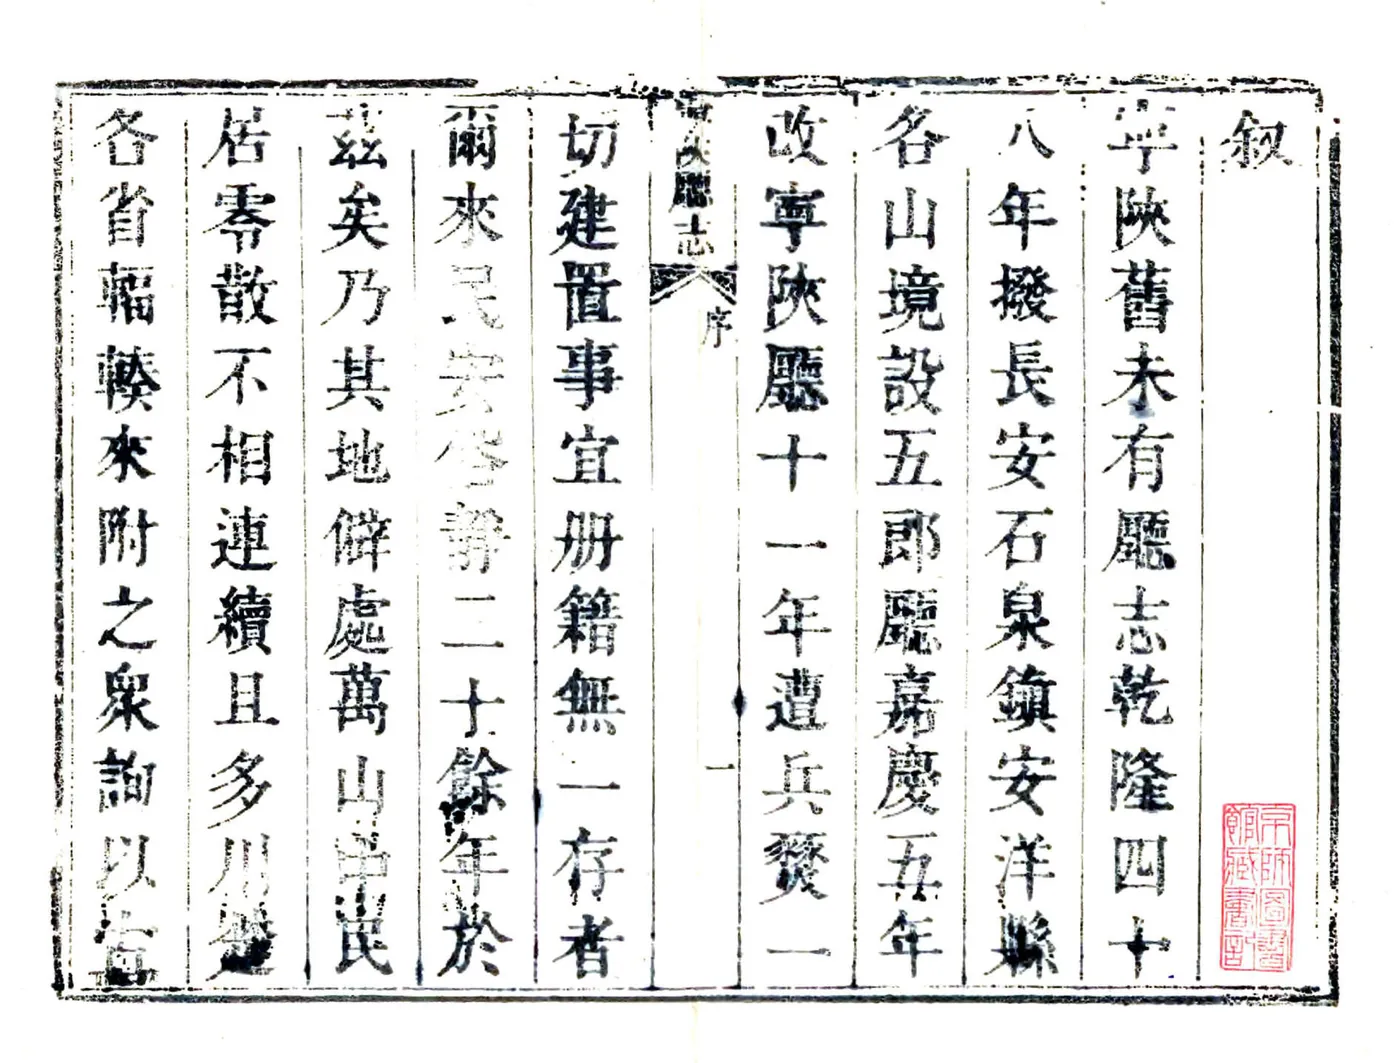 叙
寧陝舊未有廳志乾隆四十
八年撥長安石泉鎮安洋縣
名山境設五郎廳嘉慶五年
改寧陝廳十一年遭兵燹一
寧陝廳志
序
一
切建置事宜册籍無一存者
爾來民安俗靜二十餘年於
茲矣乃其地僻處萬山中民
居零散不相連續且多川楚
各省輻輳來附之衆詢以官
京師圖書
館藏書記